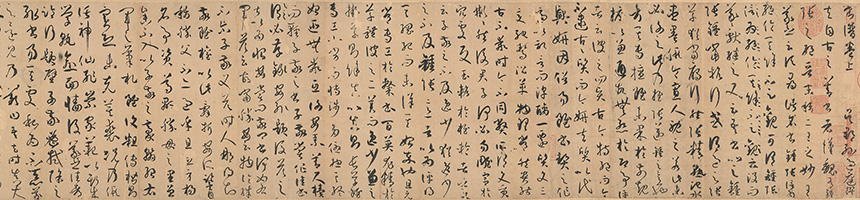 書譜卷上 吳郡孫過庭撰
夫自古之善書者漢魏有鍾
張之絕晉末稱二王之妙王
羲之云頃尋諸名書鍾張信為
絕倫其餘不足觀可謂鍾張云沒而
羲獻繼之又云吾書比之鍾
張鍾當抗行或謂過之張草
猶當鴈行然張精熟池水
盡墨假令寡人耽之若此
未必謝之此乃推張邁鍾之意也
考其專擅雖未果於前規
摭以兼通故無慚於即事評
者云彼之四賢古今特絕而今
不逮古古質而今妍夫質以代
興妍因俗易雖書契之作
適以記言而淳醨一遷質文三
變馳騖沿革物理常然貴能
古不乖時今不同弊所謂文質
彬彬然後君子何必易雕宮於
穴處反玉輅於椎輪者乎又
云子敬之不及逸少猶逸少
之不及鍾張意者以為評得
其綱紀而未詳其始卒也且元
常專工於隸書百英尤精於
草體彼之二美而逸少兼之
擬草則餘真比真則長草
雖專工小劣而博涉多優揔其終
始匪無乖互謝安素善尺牘
而輕子敬之書子敬嘗作佳書
與之謂必存錄安輒題後答之
甚以為恨安嘗問敬卿書何如右
軍答云故當勝安云物論殊
不爾子敬又答時人那得知
敬雖權以此辭折安所鑒自
稱勝父不亦過乎且立身揚
名事資尊顯勝母之里曾
參不入以子敬之豪翰紹右
軍之筆札雖復粗傳楷則
實恐未克箕裘況乃假
託神仙恥崇家範以斯成
學孰愈面牆後羲之往都臨
行題壁子敬密拭除之
輒書易其處私為不惡羲
之還見乃歎曰吾去時真大